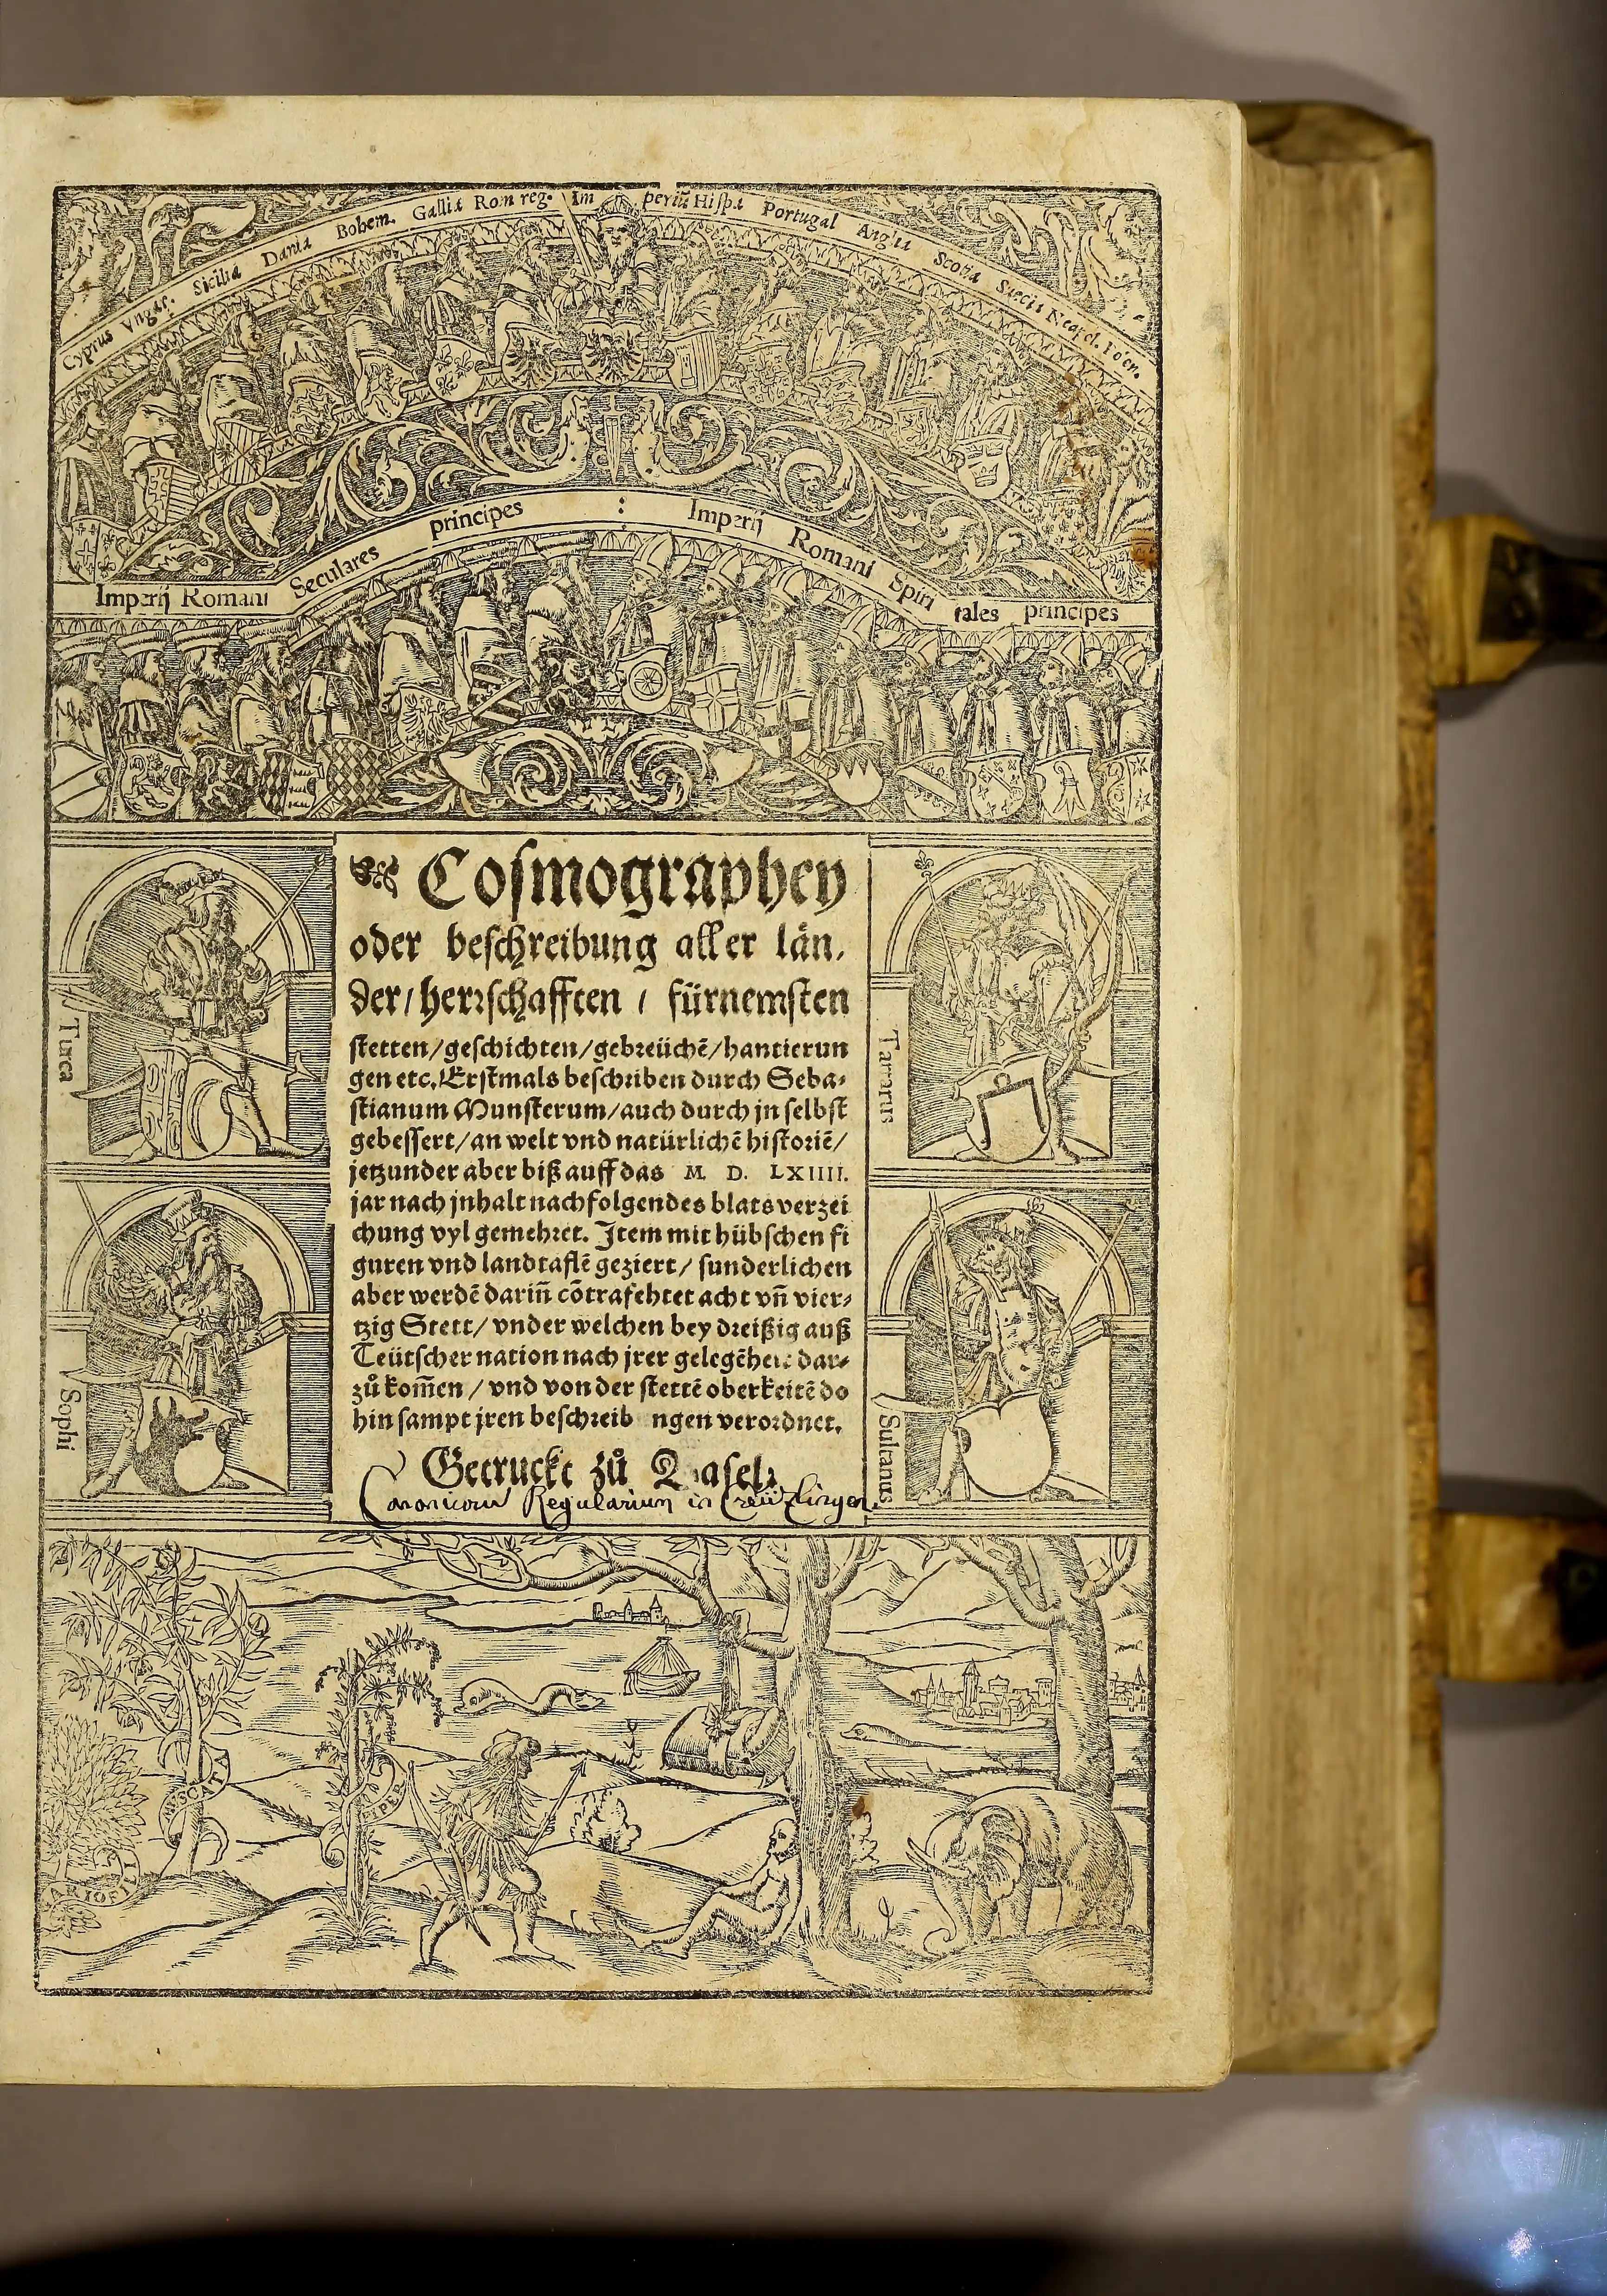 Cyprus Ungar. Sicilia Dania Bohem. Gallia Rom reg. Im periũ Hispa Portugal Anglia Scotia Suecia Neapol. Polen.
Imperij Romani Seculares principes : Imperij Romani Spiri tales principes
Cosmographey
oder beschreibung aller län,
der/herrschafften / fürnemsten
stetten/geschichten/gebreüchẽ/hantierun
gen etc. Erstmals beschriben durch Seba-
stianum Munsterum/auch durch jn selbst
gebessert/an welt vnd natürlichẽ historiẽ/
jetzunder aber biß auff das M. D. LXIIII.
jar nach jnhalt nachfolgendes blats verzei
chung vyl gemehret. Item mit hübschen fi
guren vnd landtaflẽ geziert/ sunderlichen
aber werdẽ dariñ cõtrafehtet acht vñ vier-
tzig Stett/ vnder welchen bey dreißig auß
Teütscher nation nach jrer gelegẽheit dar-
zů kom̃en / vnd von der stettẽ oberkeitẽ do
hin sampt jren beschreib ngen verordnet.
Getruckt zů Basel.
Canonicorum Regularium in Creützlingen.
Turca
Tartarus
Sophi
Sultanus
MUSCATI
PIPER
GARIOFILI